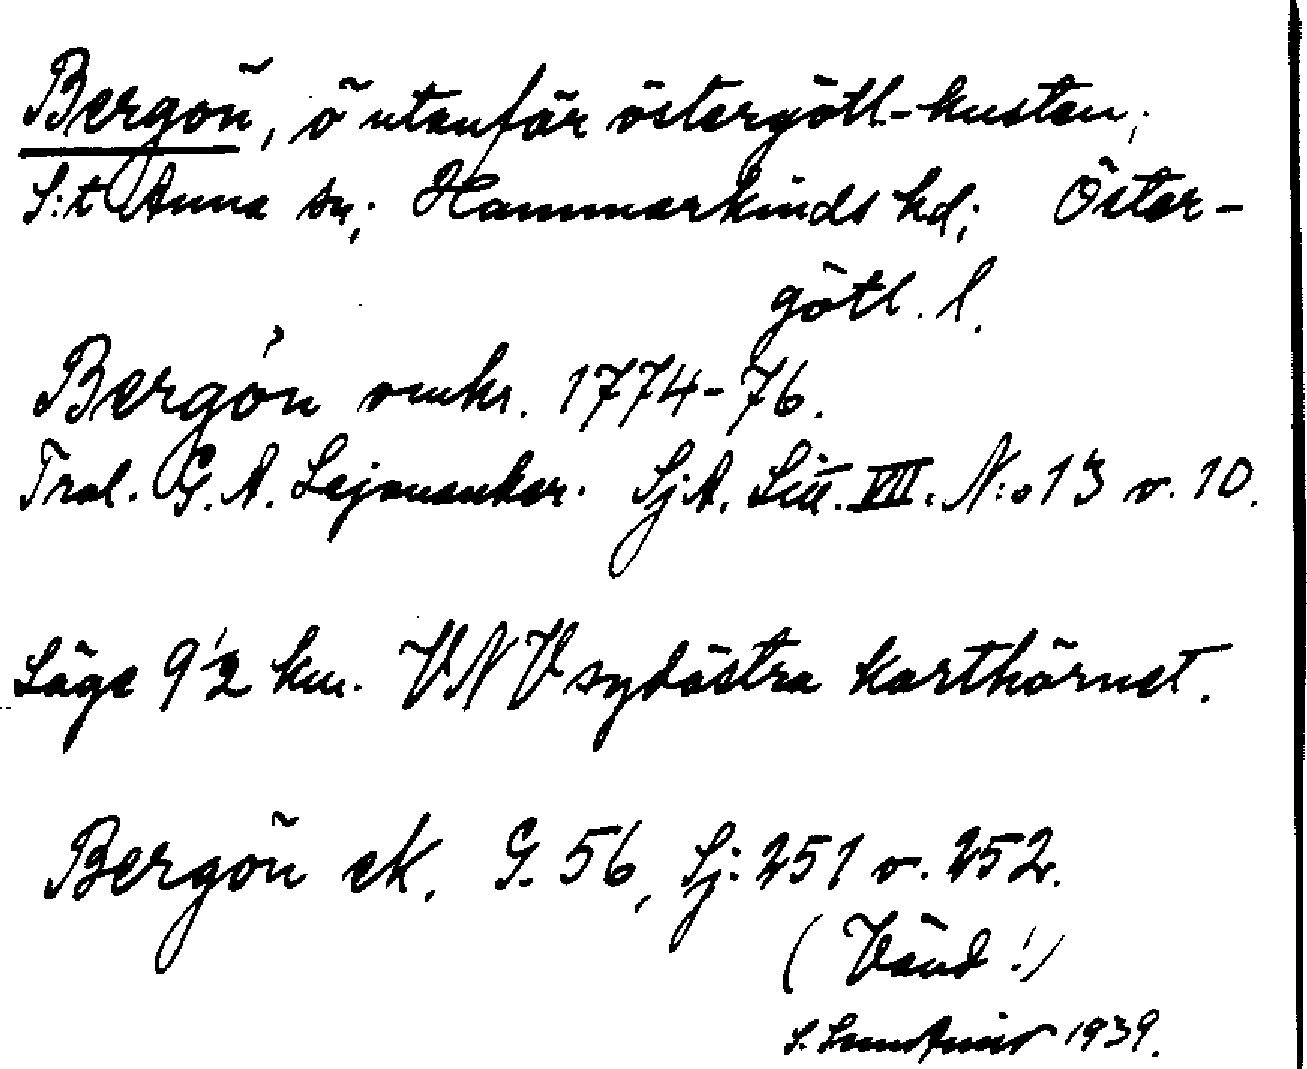 Bergön, ö utanför östergötl.-kusten,
S:t Anna sn; Hammarkinds hd; Öster-
götl. l.
Bergön 1774-76.
G. A. Lejonanker. Sj.A. Litt. VIII. N:o 13 o. 10.
Läge 9 1/2 km. VNV sydöstra karthörnet.
Bergön ek. G. 56, Sj: 251 o. 252.
(Vänd!)
S. 1939.